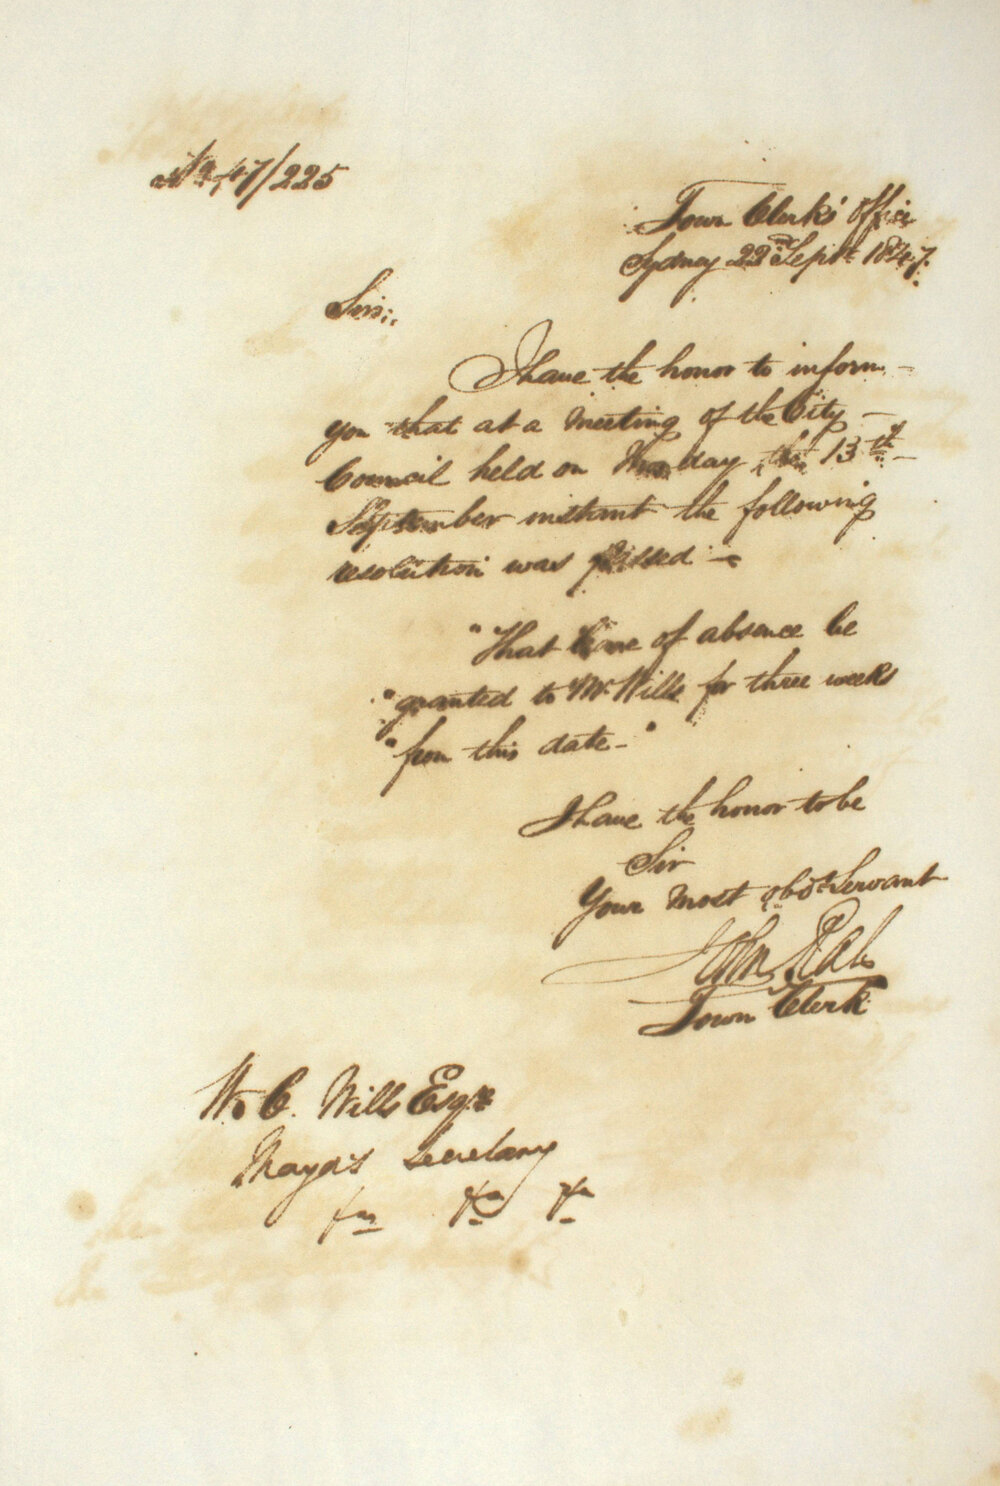 No 47/225
Town Clerk's Office
Sydney 22nd Septr 1847.
Sir,
I have the honor to inform
you that at a Meeting of the City
Council held on Monday the 13th
September instant the following
resolution was passed -
"That leave of absence be
"granted to Mr. Wills for three weeks
"from this date - "
I have the honor to be
Sir
Your Most obdt Servant
John Rae
Town Clerk
Wm C. Wills Esqre
Mayor's Secretary